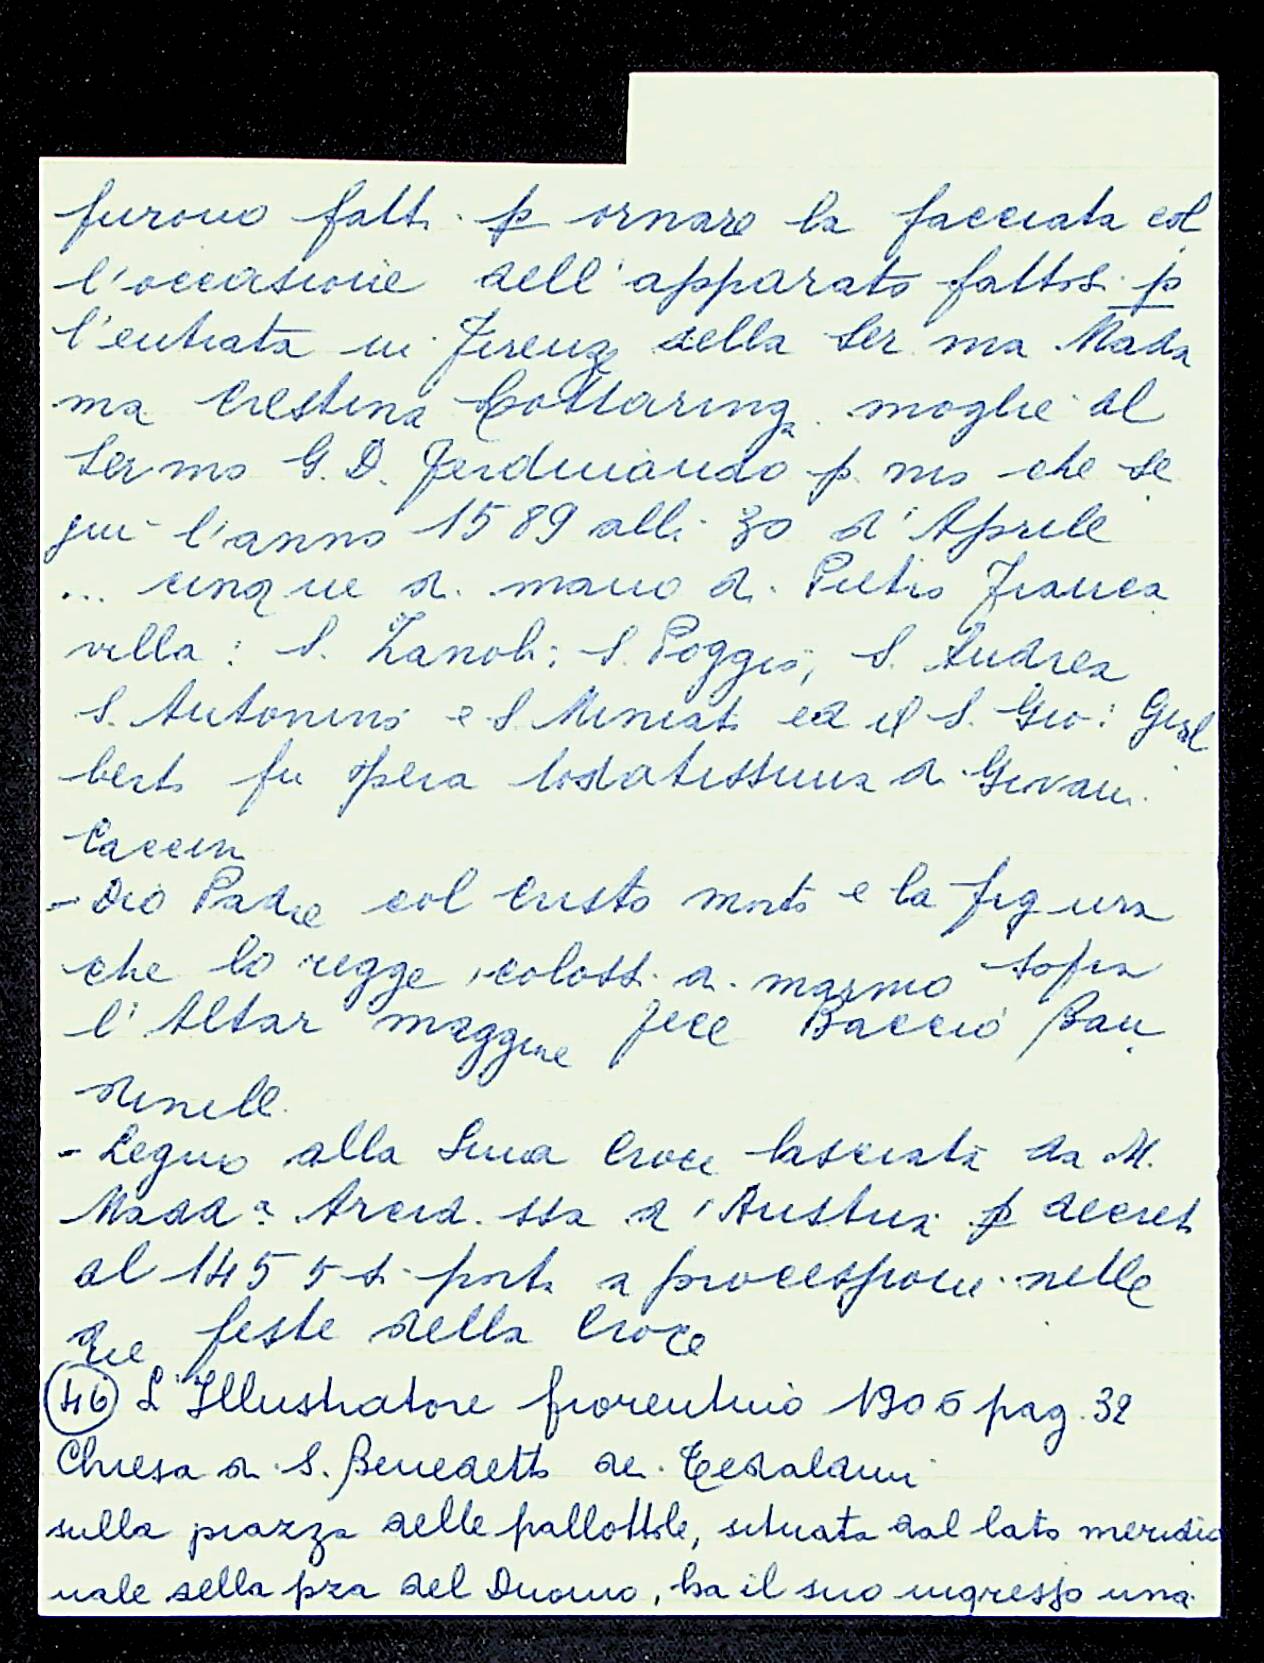 furono fatti p ornare la facciata col
l'occasione dell'apparato fattosi p
l'entrata in Firenze della Ser ma Mada
ma Crestina Lottaringa moglie del
Ser mo G. D. Ferdinando p. mo che se
guì l'anno 1589 alli 30 d'Aprile
... cinque di mano di Pietro Franca
villa: S. Zanobi; S. Poggio, S. Andrea
S. Antonino e S. Miniato ed il S. Gio: Gual
berto fu opera lodatissima di Giovanni
Caccini
- Dio Padre col Cristo morto e la figura
che lo regge, colossi di marmo sopra
l'Altar maggiore fece Baccio Ban
dinelli
- Legno alla Croce lasciata da M.
Madd a Arcid. ssa d'Austria p decreto
del 1455 si porta a processione nelle
due feste della Croce
46 L'Illustratore fiorentino 1906 pag. 32
Chiesa di S. Benedetto dei Tedaldini
sulla piazza delle pallottole, situata dal lato meridio
nale della pza del Duomo, ha il suo ingresso una